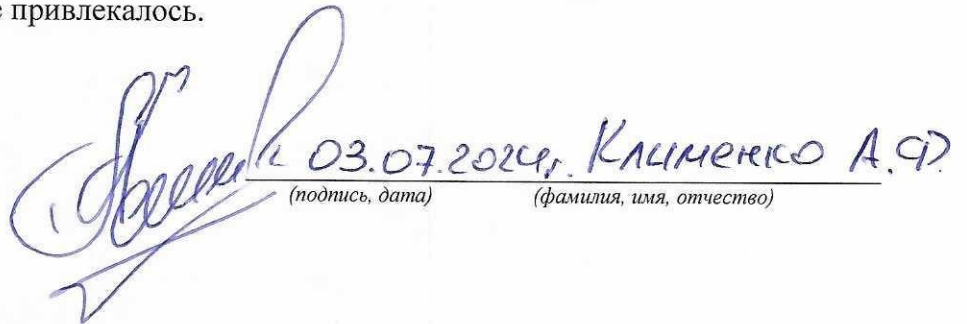 е привлекалось.
03.07.2024г. Клименко А.Ф.
(подпись, дата) (фамилия, имя, отчество)